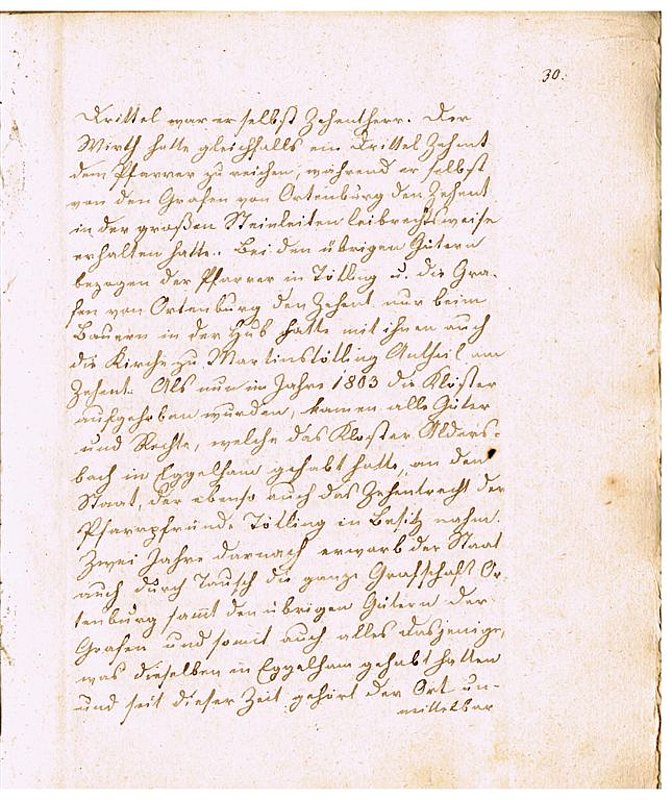 30.
Drittel war er selbst Zehentherr. Der
Wirth hatte gleichfalls ein Drittel Zehent
dem Pfarrer zu reichen, während er selbst
von den Grafen von Ortenburg den Zehent
in der großen Steinleiten leibrechtsweise
erhalten hatte. Bei den übrigen Gütern
bezogen der Pfarrer in Tötling u. die Gra-
fen von Ortenburg den Zehent nur beim
Bauern in der Hub hatte mit ihnen auch
die Kirche zu Martinstötling Antheil am
Zehent. Als nun im Jahre 1803 die Klöster
aufgehoben wurden, kamen alle Güter
und Rechte, welche das Kloster Alders-
bach in Eggelham gehabt hatte, an den
Staat, der ebenso auch das Zehentrecht der
Pfarrpfründe Tötling in Besitz nahm.
Zwei Jahre darnach erwarb der Staat
auch durch Tausch die ganze Grafschaft Or-
tenburg sammt den übrigen Gütern der
Grafen und somit auch alles dasjenige,
was dieselben in Eggelham gehabt hatten
und seit dieser Zeit gehört der Ort un-
mittelbar